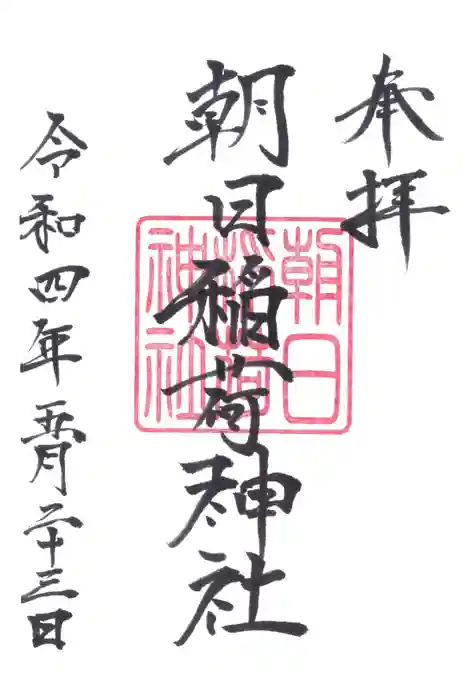 奉拝
朝日稲荷神社
朝日稲荷神社
令和四年五月二十三日